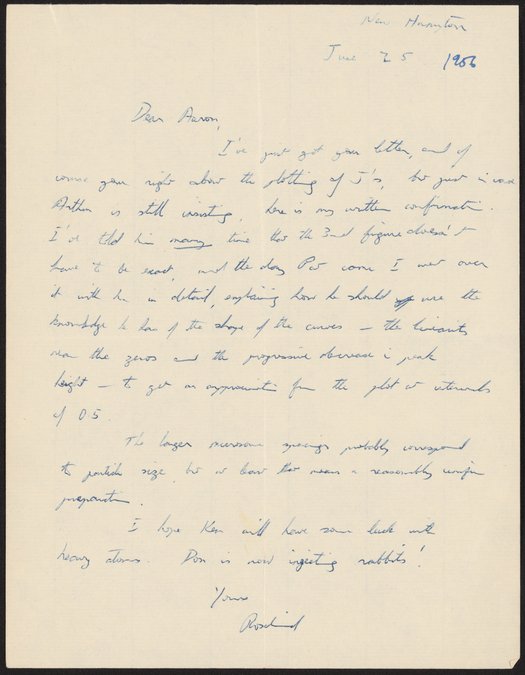 New Hampton
June 25 1956
Dear Aaron,
I've just got your letter, and of
course you're right about the plotting of J's, but just in case
Arthur is still insisting, here is my written confirmation.
I'd told him many times that the 3rd figure doesn't
have to be exact, and the day I went over
it with him in detail, explaining how he should use the
knowledge he has of the shape of the curves — the linearity
near the zeros and the progressive decrease in peak
height — to get an approximation from the plot at intervals
of 0.5.
The larger spacings probably correspond
to particle size, but at least that means a reasonably uniform
preparation.
I hope Ken will have some luck with
heavy atoms. Don is now injecting rabbits!
Yours
Rosalind